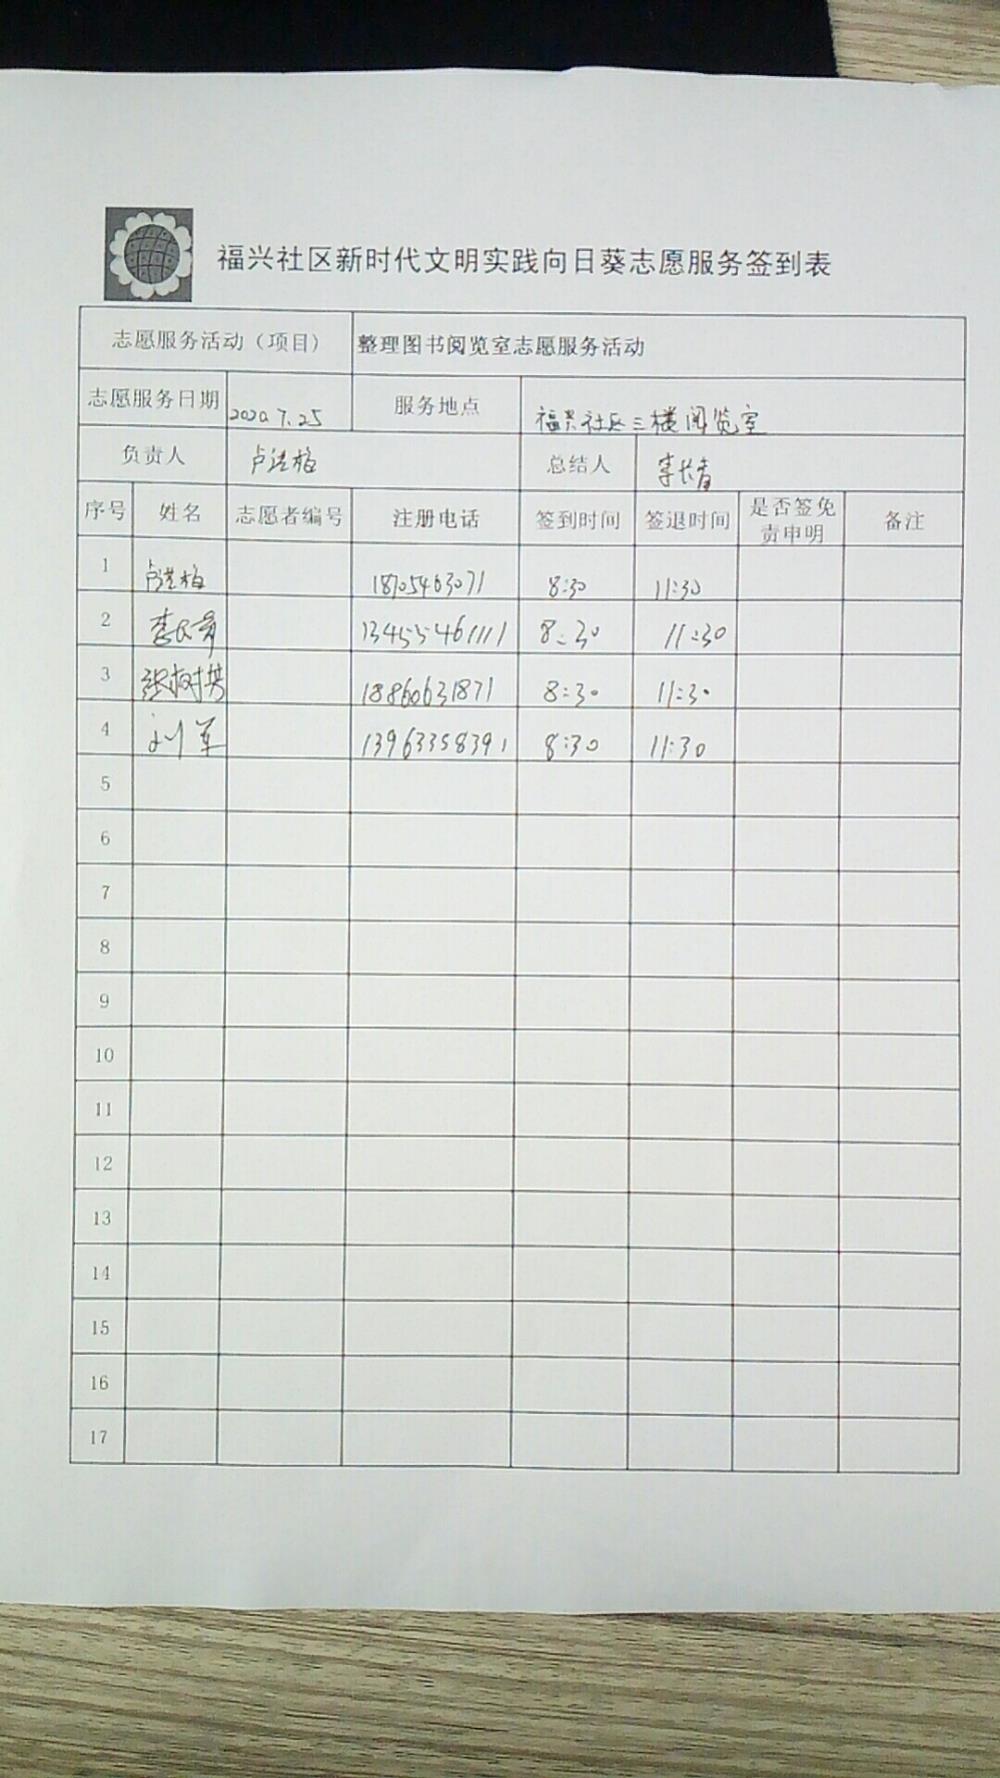 福兴社区新时代文明实践向日葵志愿服务签到表
志愿服务活动（项目） 整理图书阅览室志愿服务活动
志愿服务日期 2020.7.25 服务地点 福兴社区三楼阅览室
负责人 卢洪梅 总结人 李长青
序号 姓名 志愿者编号 注册电话 签到时间 签退时间 是否签免责申明 备注
1 卢洪梅 18705463071 8:30 11:30
2 13455461111 8:30 11:30
3 18860631871 8:30 11:30
4 刘军 13963358391 8:30 11:30
5
6
7
8
9
10
11
12
13
14
15
16
17